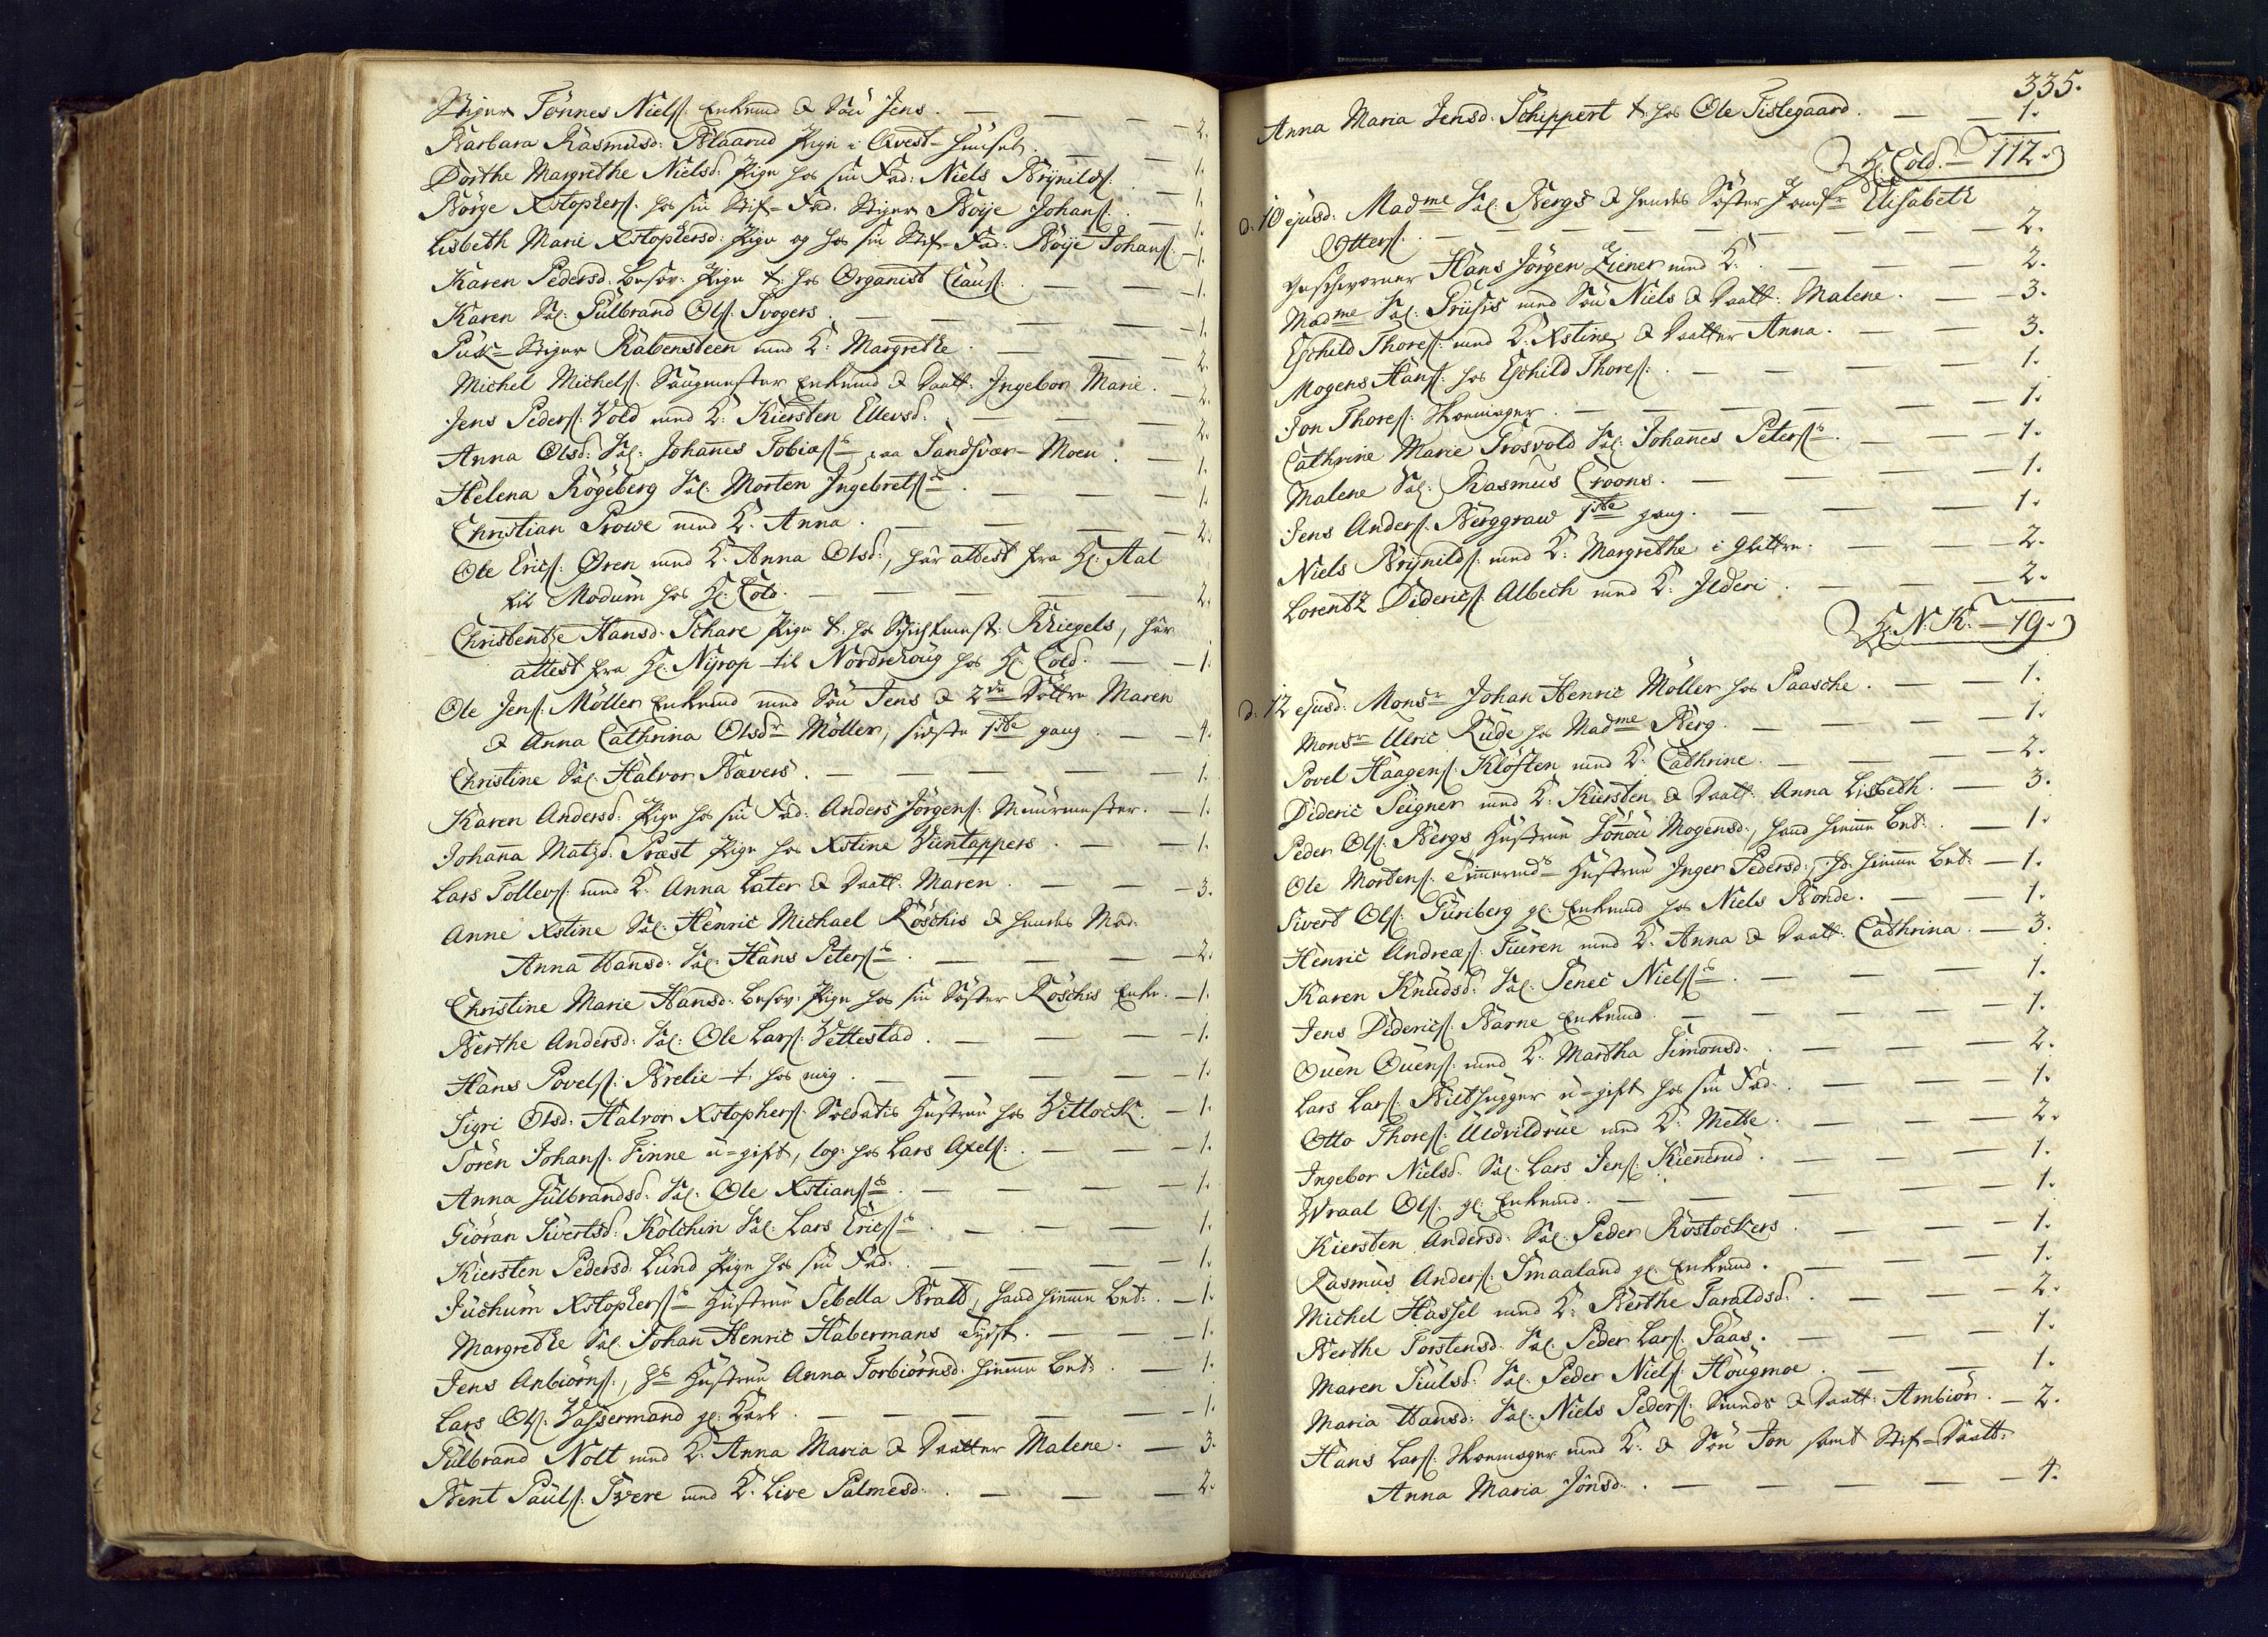 Stiger Tönnes Nielsß: Enkemd & Søn Jens. — — — — 2.
Barbara Rasmusd: Blaarud Pige i Qvest-Huuset. — — 1.
Dorthe Margrethe Nielsd: Pige hos sin Fad: Niels Brynildß: — 1.
Börge Xstophersß: hos sin Stif-Fad. Stiger Boye Johanß: — 1.
Lisbeth Marie Xstophersd: Pige og hos sin Stif-Fad: Boye Johanß: — 1.
Karen Pedersd: besov: Pige t: hos Organist Clauß: — — 1.
Karen Sal: Gulbrand Olß: Svogers. — — — — 1.
Puk-Stiger Rabensteen med K: Margrethe. — — — 2.
Michel Michelß: Saugmester Enkemd & Daatt: Ingebor Marie. — 2.
Jens Pederß: Vold med K: Kiersten Ellevsd: — — — 2.
Anna Olsd: Sal: Johannes Tobiæß paa Sandsvær-Moen. — 1.
Helena Rögeberg Sal: Morten Ingebretß — — — 1.
Christian Prowe med K: Anna. — — — — 2.
Ole Ericß: Øren med K: Anna Olsd:, har attest fra Hr: Aal
til Modum hos Hr: Cold. — — — — 2.
Christentze Hansd: Schare Pige t: hos Kriegels, har
attest fra Hr: Nyrop til Nordrehoug hos Hr: Cold. — — 1.
Ole Jenß: Möller Enkemd med Søn Jens & 2de Döttre Maren
& Anna Cathrina Olsdr Möller, sidste 1ste gang. — — 4.
Christine Sal: Halvor Bævers. — — — — 1.
Karen Andersd: Pige hos sin Fad: Anders Jörgenß: Muurmester. — 1.
Johanna Matzd: Præst Pige hos Xstine Viintappers. — — 1.
Lars Tollevß: med K: Anna Later & Daatt: Maren. — — 3.
Anne Xstine Sal: Henric Michael Röschis & hendes Mod:
Anna Hansd: Sal: Hans Peterß. — — — — 2.
Christine Marie Hansd: besov: Pige hos sin Söster Röschis Enke. — 1.
Berthe Andersd: Sal: Ole Larß: Vettestad. — — — 1.
Hans Povelß: Brelie t: hos mig. — — — — 1.
Sigri Olsd: Halvor Xstopherß: Soldatis Hustrue hos Vitlock. — 1.
Sören Johanß: Finne u-gift, log: hos Lars Axelß: — — 1.
Anna Gulbrandsd: Sal: Ole Xstianß. — — — 1.
Giöran Sivertsd: Kolchin Sal: Lars Ericß — — — 1.
Kiersten Pedersd: Lund Pige hos sin Fad: — — — 1.
Juchum Xstopherß Hustrue Sebella Bratt, hand hiemme bet: — 1.
Margrethe Sal: Johan Henric Habermans Tydsk. — — 1.
Jens Anbiörnß:, Hs Hustrue Anna Torbiörnsd: hiemme bet: — 1.
Lars Olß: Vassermand gl: Karl. — — — — 1.
Gulbrand Nolt med K: Anna Maria & Daatter Malene. — 3.
Bent Paulß: Tvere med K: Live Palmesd: — — — 2.
335.
Anna Maria Jensd: Schippert t: hos Ole Tislegaard. — — 1.
Hr: Cold. — 112.
d: 10 ejusd: Madme Sal: Bergs & hendes Söster Jomfr Elisabeth
Otterß: — — — — — — 2.
Geschworner Hans Jörgen Ziener med K: — — — 2.
Madme Sal: Prüsis med Søn Niels & Daatt: Malene. — — 3.
Eschild Thoreß: med K: Xstine & Daatter Anna. — — 3.
Mogens Hanß: hos Eschild Thoreß: — — — — 1.
Jon Thoreß: Skoemager. — — — — — 1.
Cathrine Marie Trosvold Sal: Johannes Peterß. — — 1.
Malene Sal: Rasmus Croons. — — — — 1.
Jens Anderß: Berggraw 1ste gang. — — — 1.
Niels Brynildß: med K: Margrethe i Glittre. — — 2.
Lorentz Didericß: Albech med K: Ilderi. — — — 2.
Hr: N. K. — 19.
d: 12 ejusd: Monsr Johan Henric Möller hos Paasche. — — 1.
Monsr Ulric Rude hos Madme Berg. — — — 1.
Povel Haagenß: Klöften med K: Cathrine. — — — 2.
Dideric Seigner med K: Kiersten & Daatt: Anna Lisbeth. — 3.
Peder Olß: Bergs Hustrue Lönou Mogensd:, hand hiemme bet: — 1.
Ole Mortenß: Timmermds Hustrue Inger Pedersd:, Hd: hiemme bet: — 1.
Sivert Olß: Furiberg gl: Enkemd hos Niels Bonde. — — 1.
Henric Andreæß: Fueren med K: Anna & Daatt: Cathrina. — 3.
Karen Knudsd: Sal: Tenec Nielß. — — — 1.
Jens Didericß: Barne Enkemd. — — — — 1.
Ouen Ouenß: med K: Martha Simonsd: — — — 2.
Lars Larß: Bilthugger u-gift hos sin Fad: — — — 1.
Otto Thoreß: Udvildrue med K: Mette. — — — 2.
Ingebor Nielsd: Sal: Lars Jenß: Kiennerud. — — — 1.
Wraal Olß: gl: Enkemd. — — — — 1.
Kiersten Andersd: Sal: Peder Rostockers. — — — 1.
Rasmus Anderß: Smaaland gl: Enkemd. — — — 1.
Michel Hassel med K: Berthe Taraldsd: — — — 2.
Berthe Torstensd: Sal: Peder Larß: Paas. — — — 1.
Maren Siulsd: Sal: Peder Nielß: Hougmoe. — — 1.
Maria Hansd: Sal: Niels Pederß: Smeds & Daatt: Ambiör. — 2.
Hans Larß: Skoemager med K: & Søn Jon samt Stif-Daatt:
Anna Maria Jönsd: — — — — — 4.